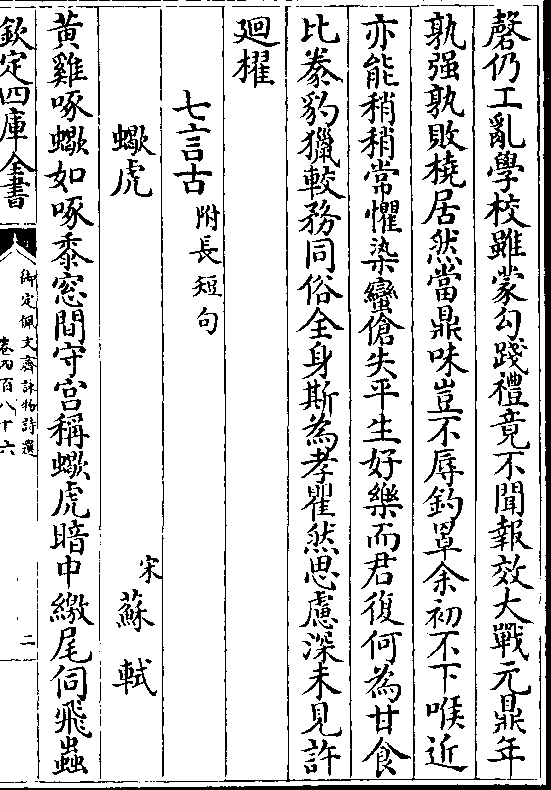 罄仍工亂學校雖蒙勾踐禮竟不聞報效大戰元鼎年
孰强孰敗橈居然當鼎味豈不辱釣罩余初不下喉近
亦能稍稍常懼染蠻傖失平生好樂而君復何為甘食
比豢豹獵較務同俗全身斯為孝瞿然思慮深未見許
廻櫂
七言古附長短句
蠍虎
宋蘇軾
黃雞啄蠍如啄黍窓間守宮稱蠍虎暗中繳尾伺飛蟲
欽定四庫全書
御定佩文齋詠物詩選
卷四百八十六
二